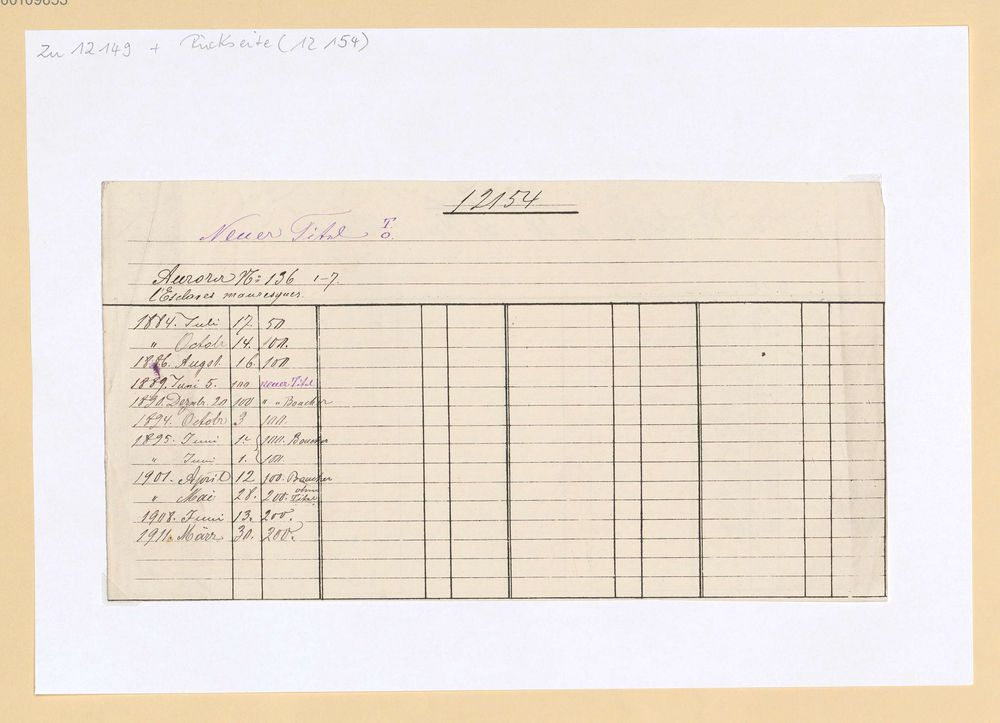 00109635
Zu 12149 + Rückseite (12 154)
12154
Neuer Titel T
O.
Aurora No: 136 1-7.
l'Esclaves mauresques
1884. Juli 17. 50
" Octobr 14. 100.
1886. Augst. 16. 100
1889. Juni 5. 100 neuer Titel
1890. Dezmbr. 20 100 " "
1894. Octobr 3 100.
1895. Juni 1. 100.
" Juni 1. 100.
1901. April 12 100.
" Mai 28. 200. Titel
1908. Juni 13. 200.
1911. März 30. 200.